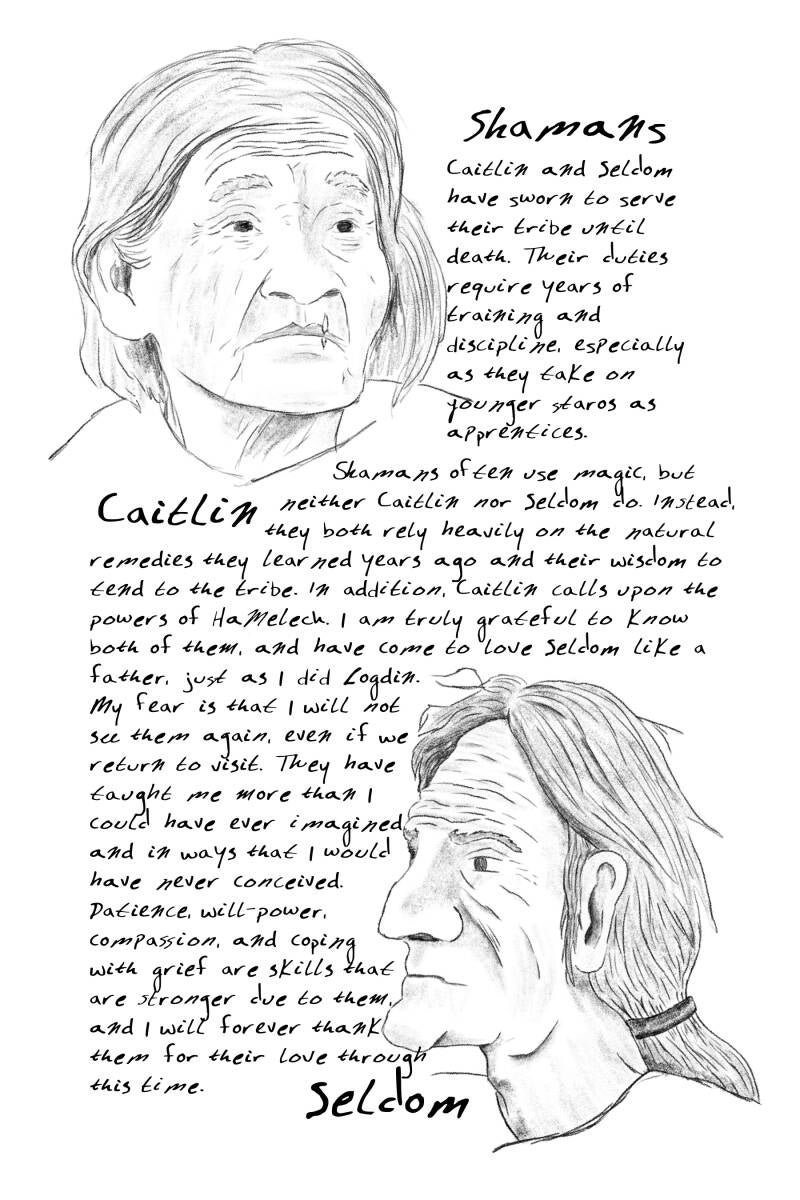 Shamans
Caitlin and Seldom
have sworn to serve
their tribe until
death. Their duties
require years of
training and
discipline, especially
as they take on
younger staros as
apprentices.
Shamans often use magic, but
Caitlin
neither Caitlin nor Seldom do. Instead,
they both rely heavily on the natural
remedies they learned years ago and their wisdom to
tend to the tribe. In addition, Caitlin calls upon the
powers of HaMelech. I am truly grateful to know
both of them, and have come to love Seldom like a
father, just as I did Logdin.
My fear is that I will not
see them again, even if we
return to visit. They have
taught me more than I
could have ever imagined,
and in ways that I would
have never conceived.
Patience, will-power,
compassion, and coping
with grief are skills that
are stronger due to them,
and I will forever thank
them for their love through
this time.
Seldom